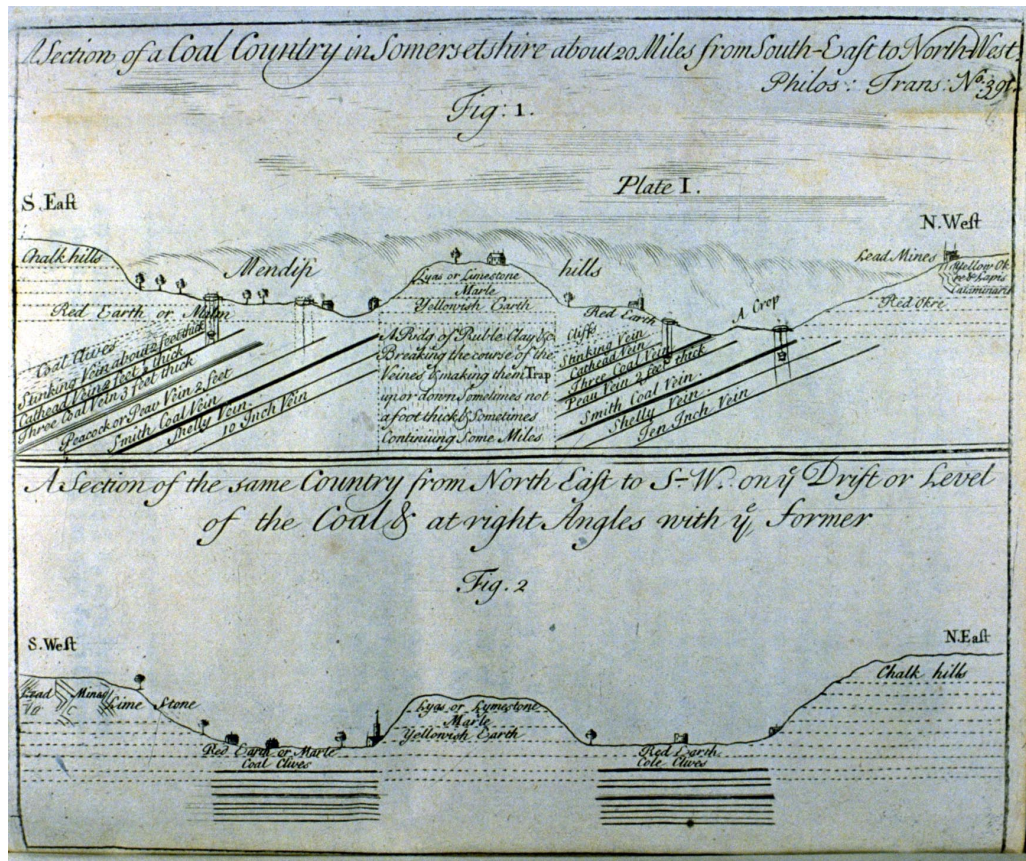 A Section of a Coal Country in Somersetshire about 20 Miles from South-East to North-West.
Philos: Trans: No. 391.
Fig: 1.
Plate I.
S. East
N. West
Chalk hills
Mendip
hills
Lyas or Limestone
Marle
Yellowish Earth
Lead Mines
Yellow Ok
re & Lapis
Calaminaris
Red Okre
Red Earth or Malm
Red Earth
A Crop
Coal Clives
Stinking Vein about 2 foot thick
Cathead Vein
Three Coal Vein 3 Foot thick
Peacock or Peaw Vein 2 feet
Smith Coal Vein
Shelly Vein
10 Inch Vein
A Ridg of Ruble Clay &c
Breaking the course of the
Veines & making them Trap
up or down Sometimes not
a foot thick & Sometimes
Continuing Some Miles
Clift
Stinking Vein
Cathead Vein
Three Coal Vein
Peau Vein
Smith Coal Vein
Shelly Vein
Ten Inch Vein
A Section of the same Country from North East to S-W. on ye Drift or Level
of the Coal & at right Angles with ye former
Fig. 2
S. West
N. East
Lead Mines
Lime Stone
Lyas or Lymestone
Marle
Yellowish Earth
Chalk hills
Red Earth or Marle
Coal Clives
Red Earth
Cole Clives